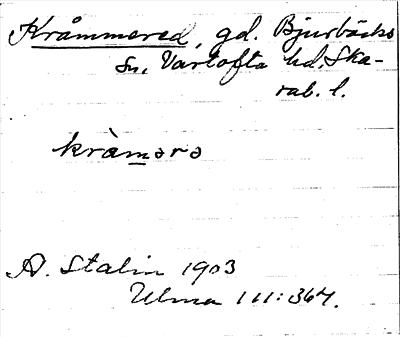 Kråmmered, gd. Bjurbäcks
sn, Vartofta hd. Ska-
rab. l.
kràmərə
A. Stalin 1903
Ulma 111:367.